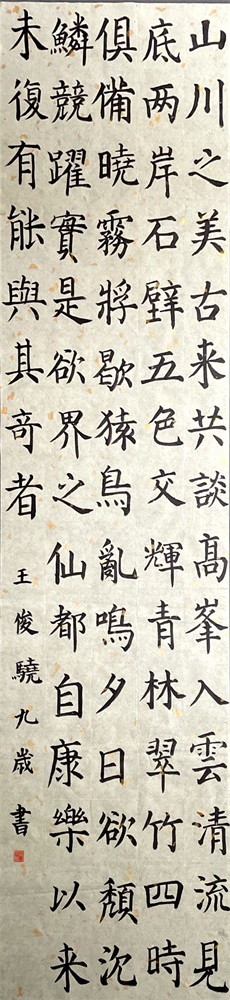 山川之美古来共談高峯入雲清流見
底两岸石壁五色交輝青林翠竹四時
俱備曉霧將歇猿鳥亂鳴夕日欲頹沉
鱗競躍實是欲界之仙都自康樂以来
未復有能與其奇者
王俊驍九歲書